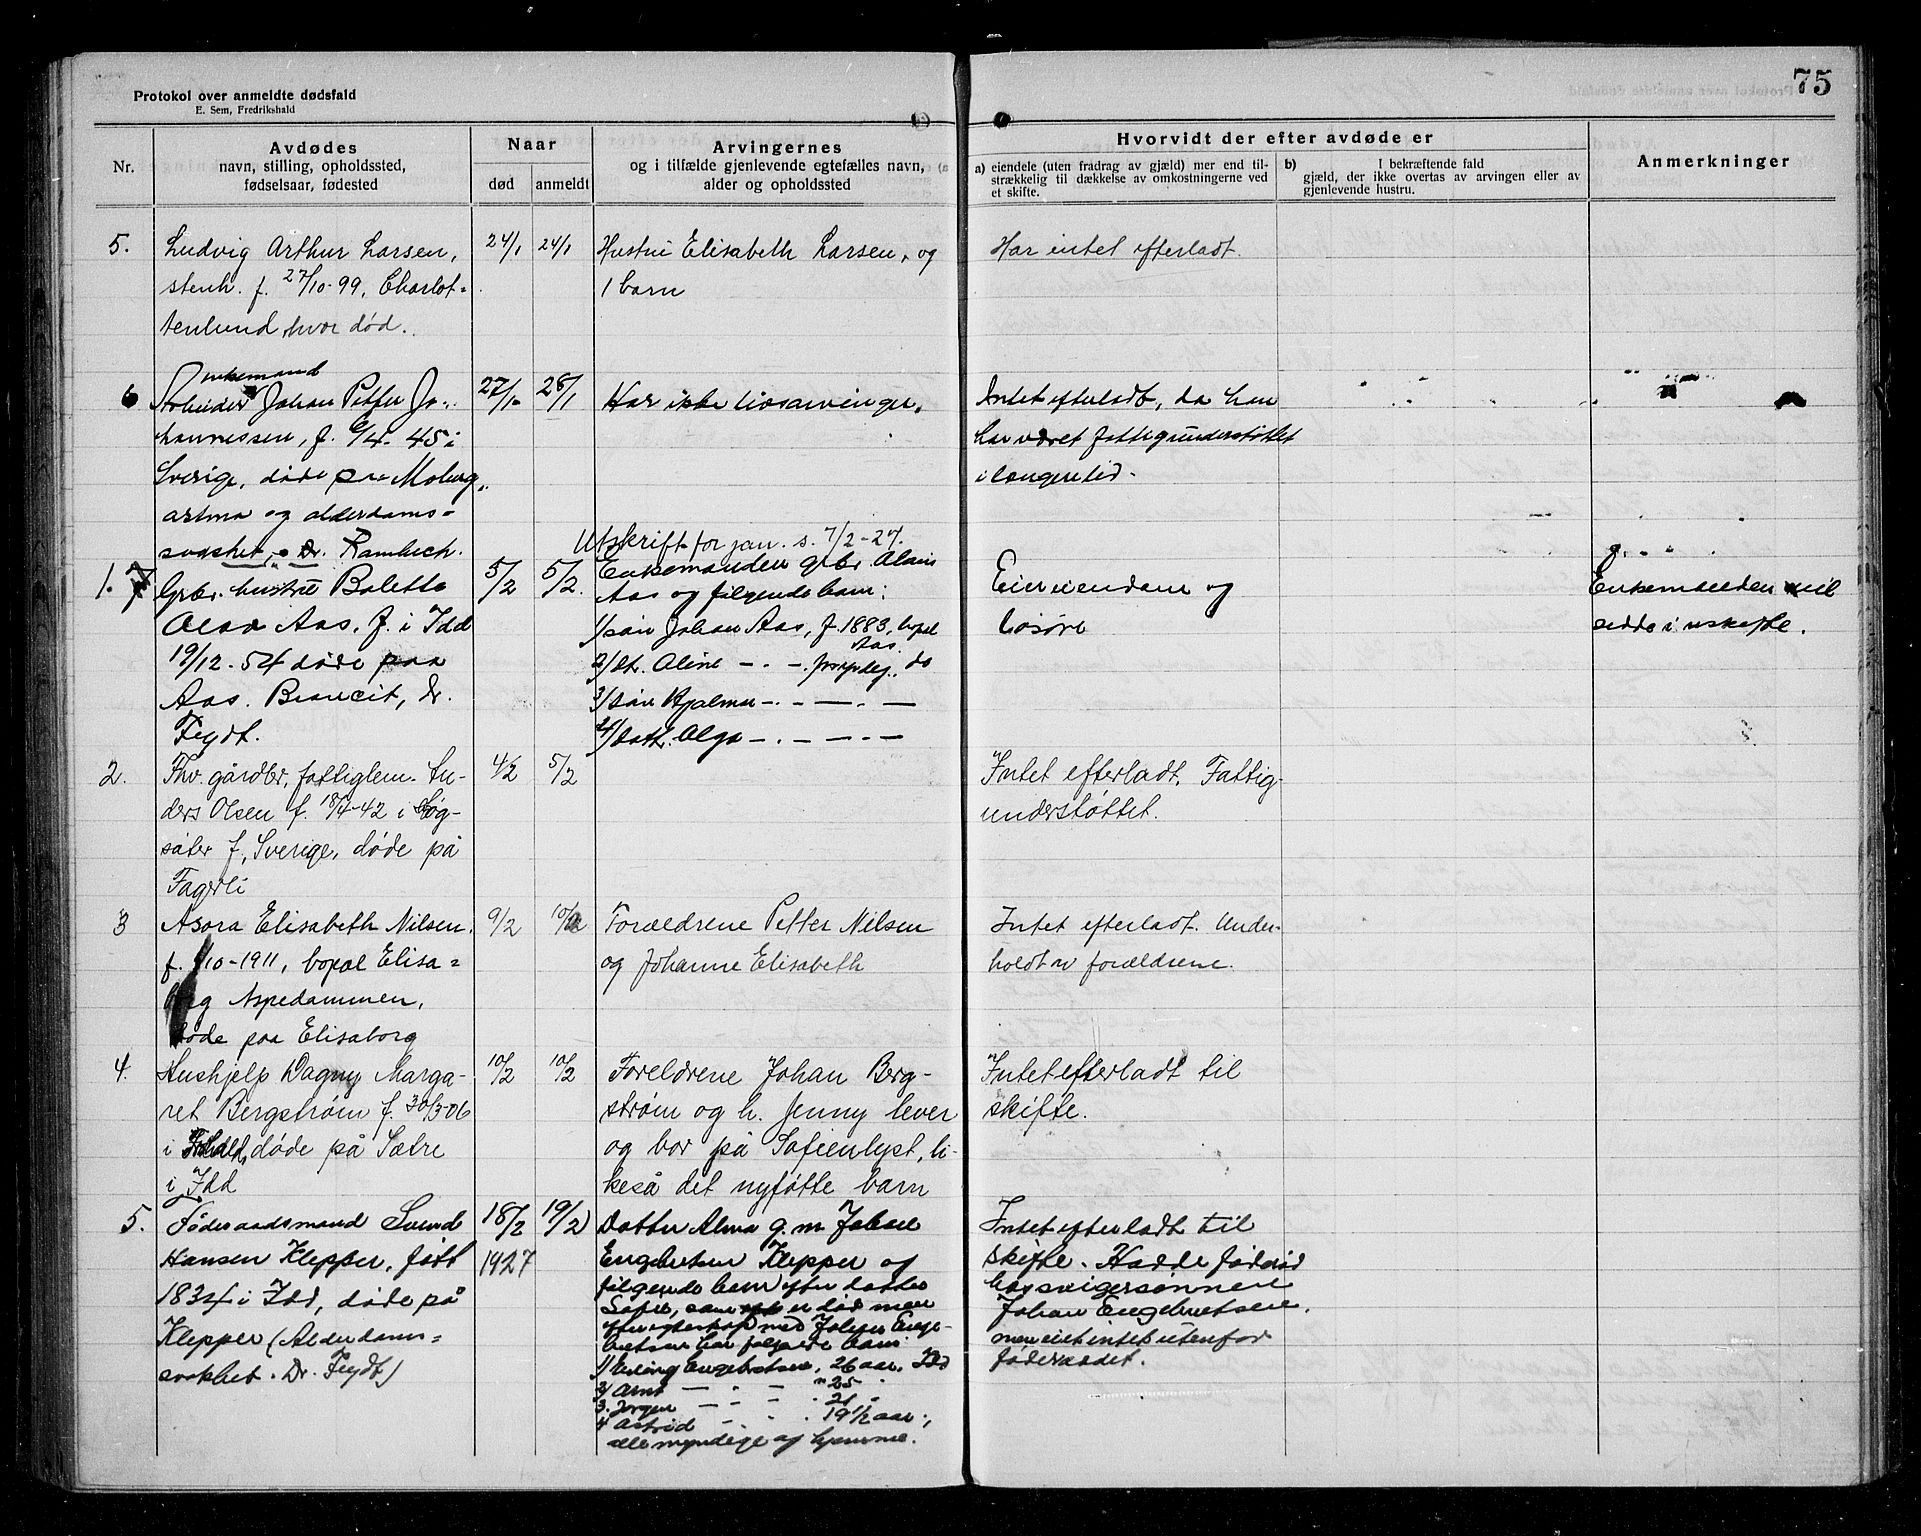 75
Protokol over anmeldte dødsfald
E. Sem, Fredrikshald
Nr.
Avdødes
navn, stilling, opholdssted,
fødselsaar, fødested
Naar
død
anmeldt
Arvingernes
og i tilfælde gjenlevende egtefælles navn,
alder og opholdssted
Hvorvidt der efter avdøde er
a) eiendele (uten fradrag av gjæld) mer end til-
strækkelig til dækkelse av omkostningerne ved
et skifte.
b) I bekræftende fald
gjæld, der ikke overtas av arvingen eller av
gjenlevende hustru.
Anmerkninger
5.
Ludvig Arthur Larsen,
stenh. f. 27/10-99, Charlot-
tenlund, hvor død.
24/1
24/1
Hustru Elisabeth Larsen, og
1 barn
Har intet efterladt.
6
enkemand
Arbeider Johan Petter Jo-
hannessen, f. 6/4-45 i
Sverige, døde paa Moberg,
astma og alderdoms-
svakhet, Dr. Rambech.
27/1
28/1
Har ikke livsarvinger.
Intet efterladt, da han
har været fattigunderstøttet
i længere tid.
Utskrift for jan. s. 7/2-27.
1. 7
Grbr. hustru Bolette
Olava Aas, f. i Idd
19/12-54 døde paa
Aas. Broncit, Dr.
Feydt.
5/2
5/2.
Enkemanden grbr. Olaus
Aas og følgende barn:
1/ søn Johan Aas, f. 1883, bopel
Aas.
2/ dt. Oline — . — . myndig, do
3/ søn Hjalmar — . — — . —
4/ datt. Olga — . — . — . —
Eier eiendom og
løsøre
Enkemanden vil
sidde i uskifte.
2.
Fhv. gårdbr., fattiglem. An-
ders Olsen f. 18/4-42 i Høg-
säter f, Sverige, døde på
Fagerli
4/2
5/2
Intet efterladt, Fattig-
understøttet.
3
Asora Elisabeth Nilsen,
f. 1/10-1911, bopæl Elisa-
borg Aspedammen,
døde paa Elisaborg
9/2
10/2
Forældrene Petter Nilsen
og Johanne Elisabeth
Intet efterladt. Under-
holdt av forældrene.
4.
Hushjelp Dagny Marga-
ret Bergstrøm f. 30/3-06
i Fr.hald, døde på Sætre
i Idd
10/2
10/2
Foreldrene Johan Berg-
strøm og h. Jenny lever
og bor på Sofienlyst, li-
keså det nyføtte barn
Intet efterladt til
skifte.
5.
Føderaadsmand Svend
Hansen Klepper, født
1834 i Idd, døde på
Klepper (Alderdoms-
svakhet. Dr. Feydt)
18/2
1927
19/2
Datter Alma g. m. Johan
Engebretsen Klepper og
følgende barn efter datter
Sofie, som er død men
efter egteskap med Johan Enge-
bretsen har følgende barn
1) Erling Engebretsen, 26 aar. Idd
2) Arnt — . — " 25 .
3. Jørgen — . — . 21 .
4 Astrid — . — . 19 1/2 aar.,
alle myndige og hjemme.
Intet efterladt til
skifte. Hadde føderåd
hos svigersønnen
Johan Engebretsen.
men eiet intet utenfor
føderaadet.